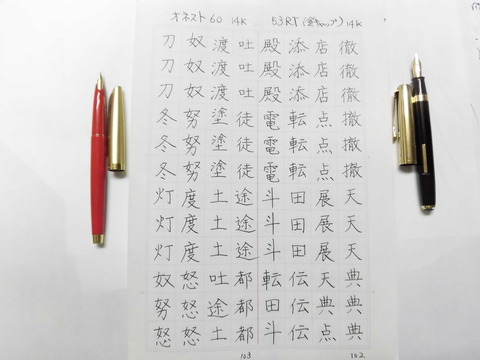 オネスト60 14K
53RT (金キャップ) 14K
徹徹徹撤撤撤天天天典典典
店店店点点点展展展天典点
添添添転転転田田田伝伝伝
殿殿殿電電電斗斗斗転田斗
吐吐吐徒徒徒途途途都都都
渡渡渡塗塗塗土土土吐途土
奴奴奴努努努度度度怒怒怒
刀刀刀冬冬冬灯灯灯奴努怒
102
103